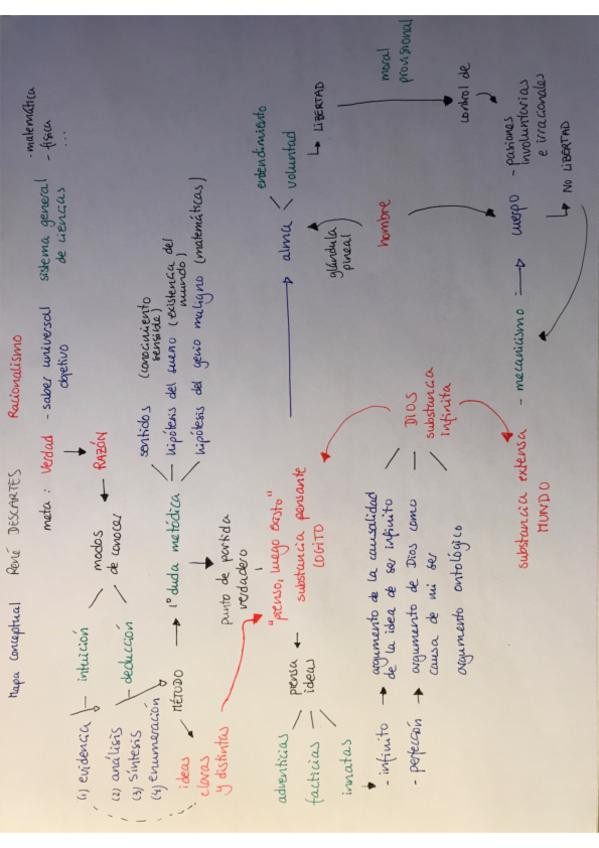 Mapa conceptual René DESCARTES Racionalismo
meta: Verdad - saber universal
objetivo
sistema general
de ciencias
- matemática
- física
...
RAZÓN
modos
de conocer
intuición
deducción
(1) evidencia
(2) análisis
(3) síntesis
(4) enumeración
MÉTODO
1º duda metódica
sentidos (conocimiento
sensible)
hipótesis del sueño (existencia del
mundo)
hipótesis del genio maligno (matemáticas)
ideas
claras
y distintas
punto de partida
verdadero
"pienso, luego existo"
substancia pensante
COGITO
alma
entendimiento
voluntad
LIBERTAD
piensa
ideas
adventicias
facticias
innatas
glándula
pineal
hombre
moral
provisional
control de
- infinito
- perfección
argumento de la causalidad
de la idea de ser infinito
argumento de Dios como
causa de mi ser
argumento ontológico
DIOS
substancia
infinita
substancia extensa
MUNDO
- mecanicismo
cuerpo
- pasiones
involuntarias
e irracionales
NO LIBERTAD